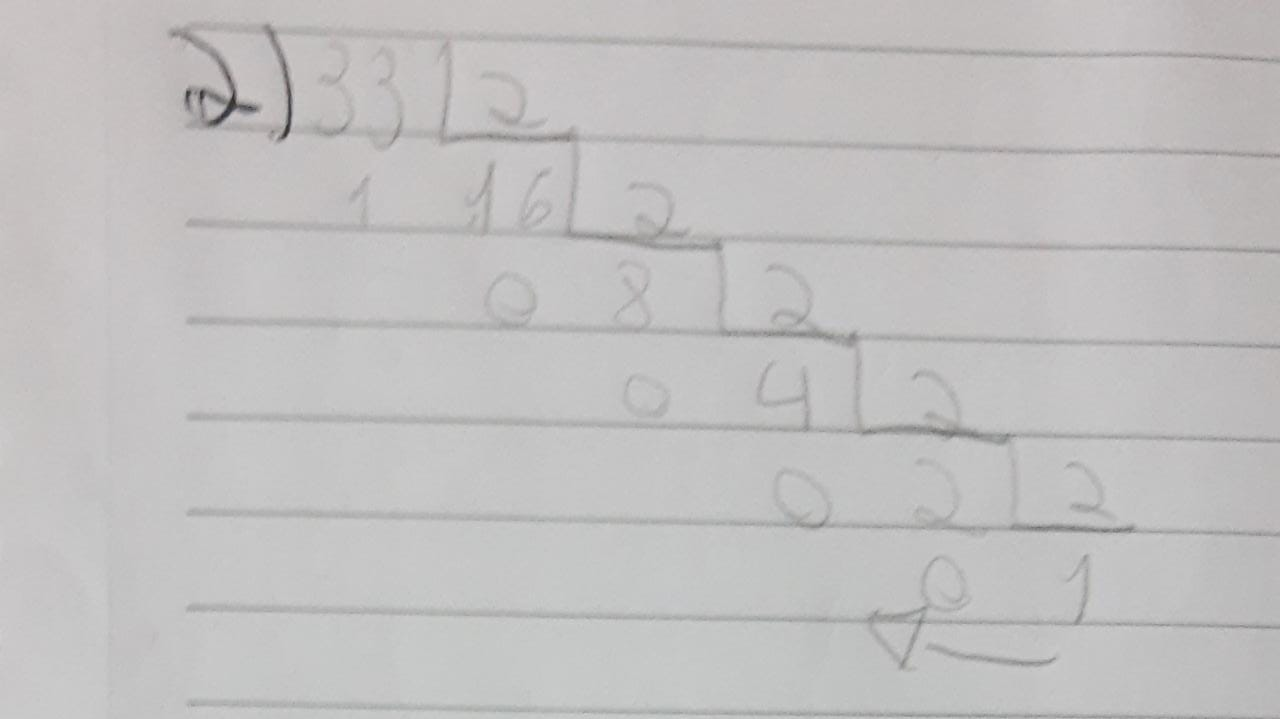 2) 33 2
1 16 2
0 8 2
0 4 2
0 2 2
0 1